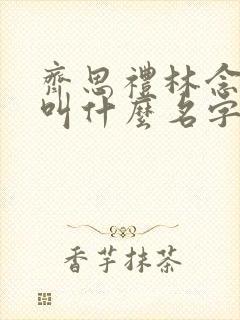 齊思禮林念
叫什麼名字
香芋抹茶